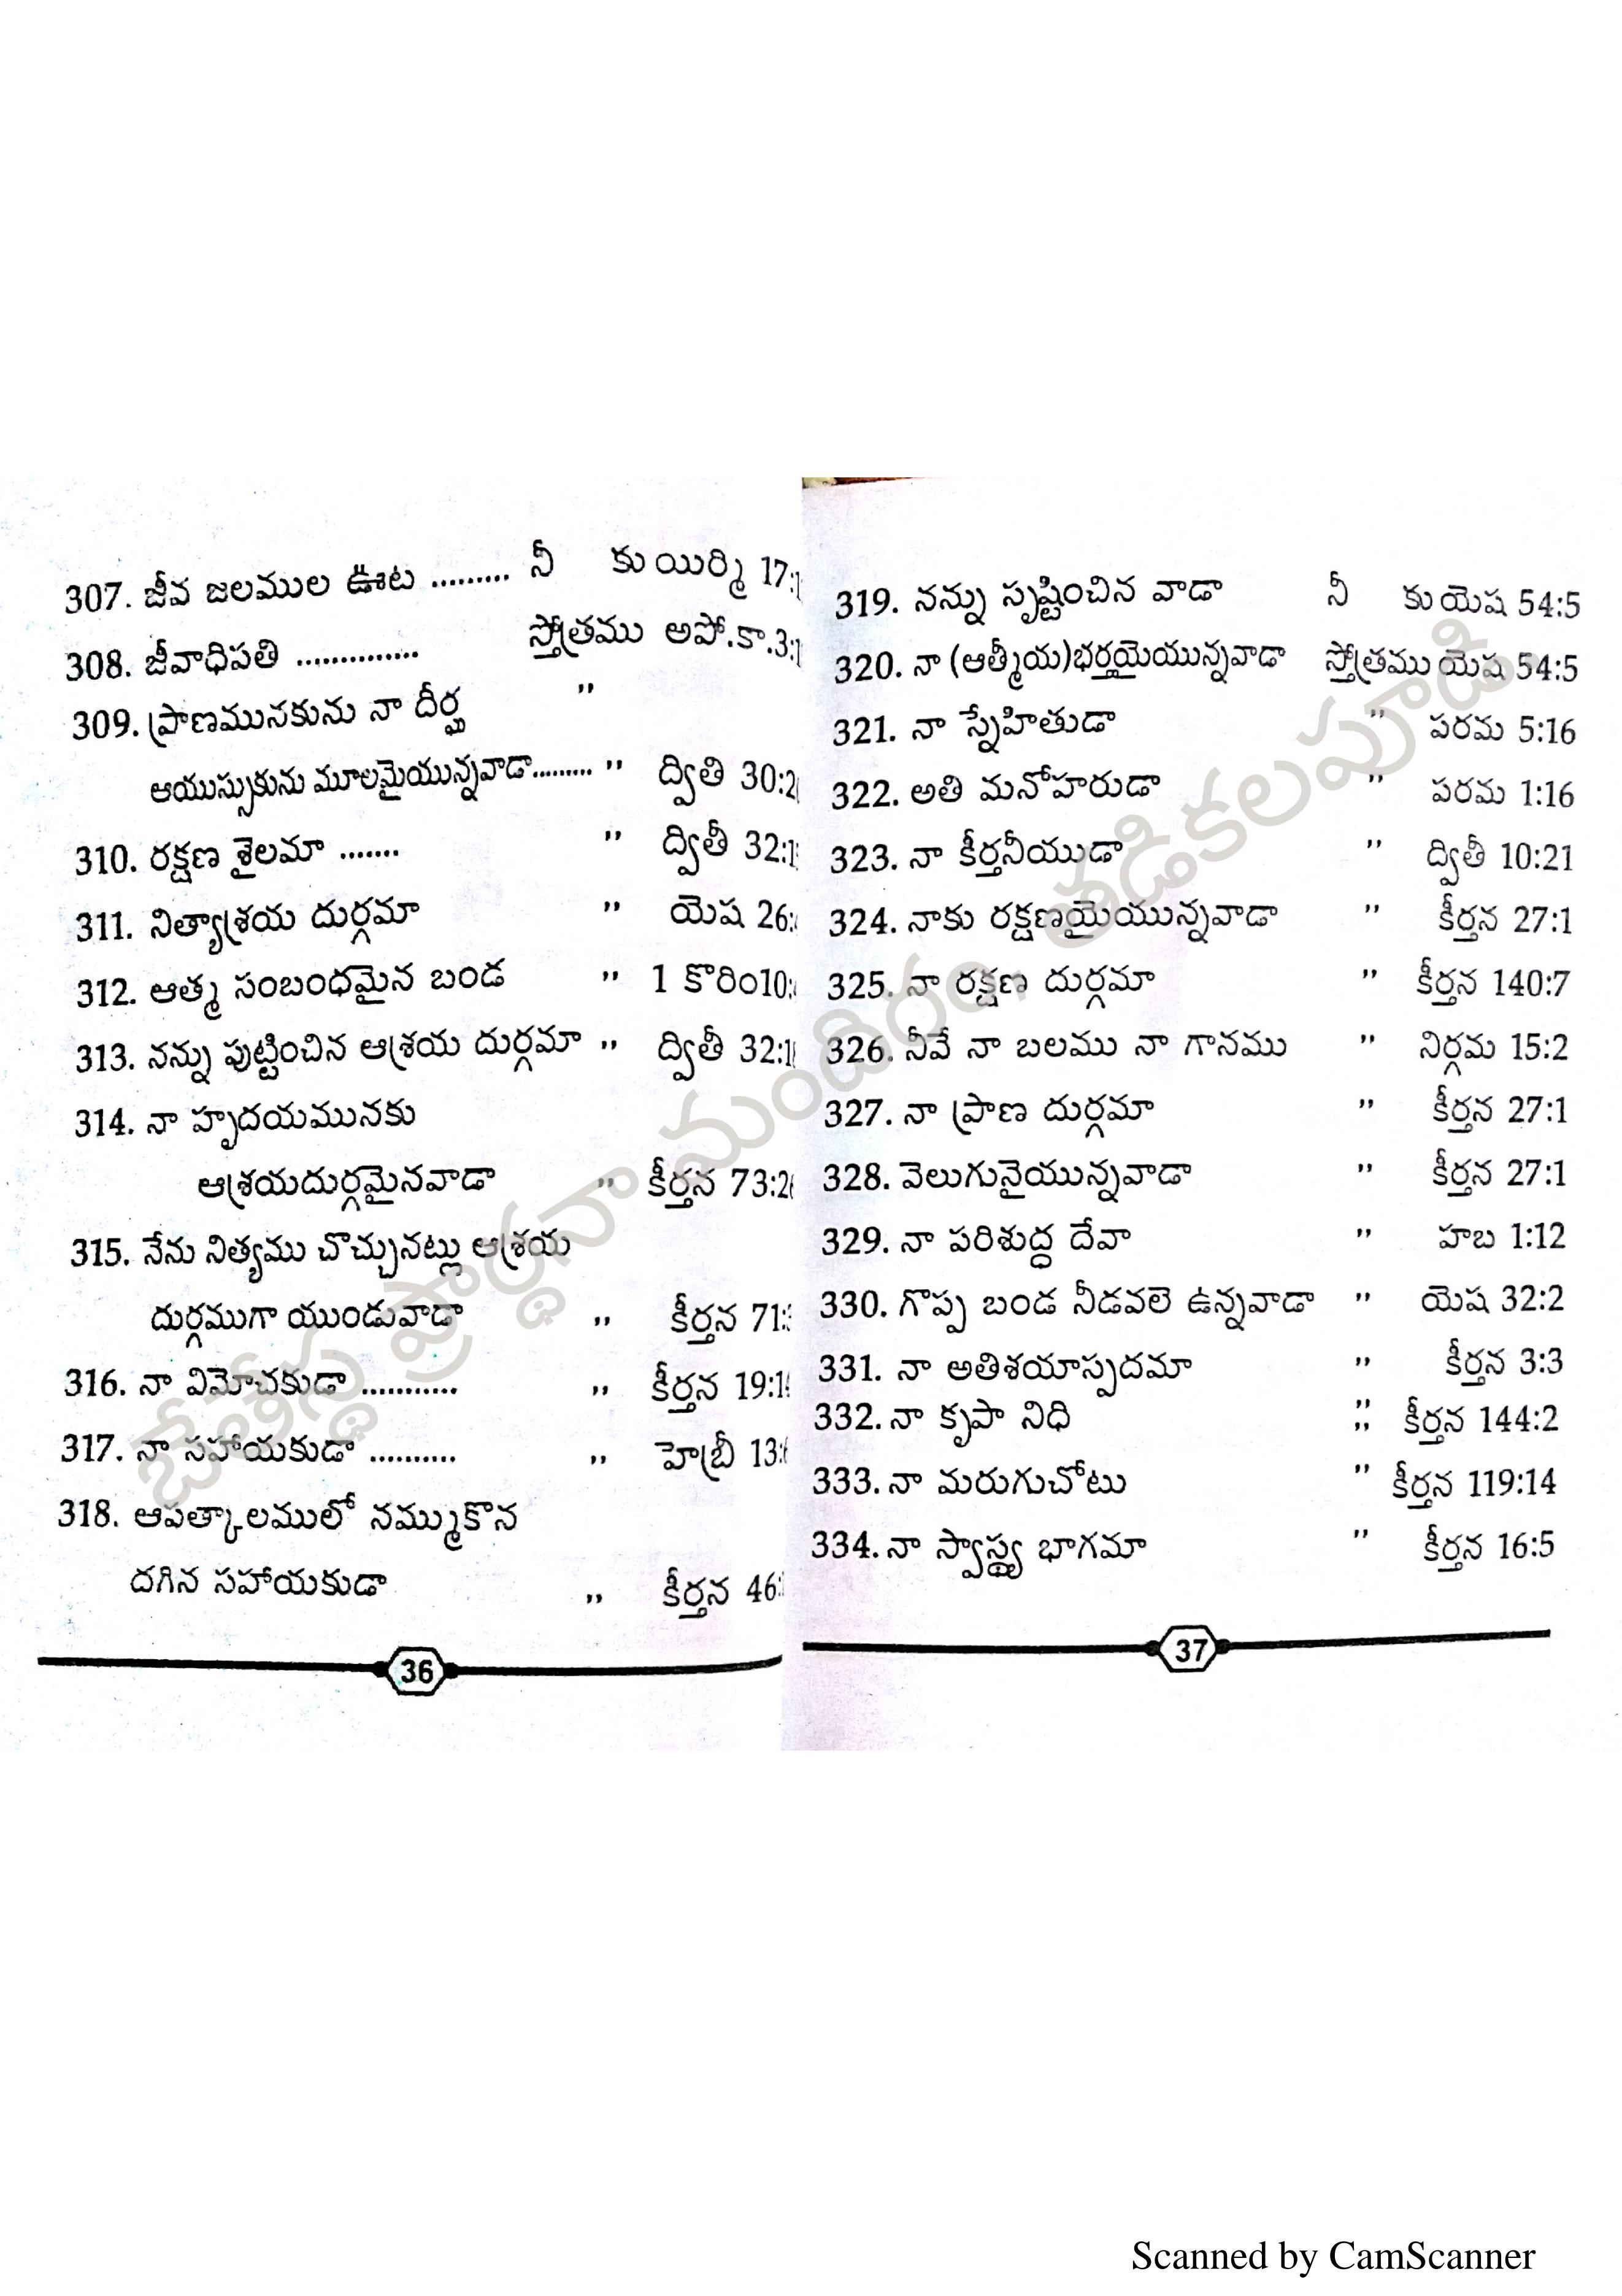 307. జీవ జలముల ఊట ......... నీ కు యిర్మి 17:1
308. జీవాధిపతి .............. స్తోత్రము అపో.కా.3:1
309. ప్రాణమునకును నా దీర్ఘ ”
ఆయుస్సుకును మూలమైయున్నవాడా......... ” ద్వితి 30:2
310. రక్షణ శైలమా ....... ” ద్వితీ 32:1
311. నిత్యాశ్రయ దుర్గమా ” యెష 26:
312. ఆత్మ సంబంధమైన బండ ” 1 కొరిం10:
313. నన్ను పుట్టించిన ఆశ్రయ దుర్గమా ” ద్వితీ 32:1
314. నా హృదయమునకు
ఆశ్రయదుర్గమైనవాడా ” కీర్తన 73:2
315. నేను నిత్యము చొచ్చునట్లు ఆశ్రయ
దుర్గముగా యుండువాడా ” కీర్తన 71:
316. నా విమోచకుడా ........... ” కీర్తన 19:1
317. నా సహాయకుడా .......... ” హెబ్రీ 13:
318. ఆపత్కాలములో నమ్ముకొన
దగిన సహాయకుడా ” కీర్తన 46:
36
319. నన్ను సృష్టించిన వాడా నీ కు యెష 54:5
320. నా (ఆత్మీయ)భర్తయైయున్నవాడా స్తోత్రము యెష 54:5
321. నా స్నేహితుడా ” పరమ 5:16
322. అతి మనోహరుడా ” పరమ 1:16
323. నా కీర్తనీయుడా ” ద్వితీ 10:21
324. నాకు రక్షణయైయున్నవాడా ” కీర్తన 27:1
325. నా రక్షణ దుర్గమా ” కీర్తన 140:7
326. నీవే నా బలము నా గానము ” నిర్గమ 15:2
327. నా ప్రాణ దుర్గమా ” కీర్తన 27:1
328. వెలుగునైయున్నవాడా ” కీర్తన 27:1
329. నా పరిశుద్ధ దేవా ” హబ 1:12
330. గొప్ప బండ నీడవలె ఉన్నవాడా ” యెష 32:2
331. నా అతిశయాస్పదమా ” కీర్తన 3:3
332. నా కృపా నిధి ” కీర్తన 144:2
333. నా మరుగుచోటు ” కీర్తన 119:14
334. నా స్వాస్థ్య భాగమా ” కీర్తన 16:5
37
బేతేస్థ ప్రార్థనా మందిరం, తడికలపూడి.
Scanned by CamScanner